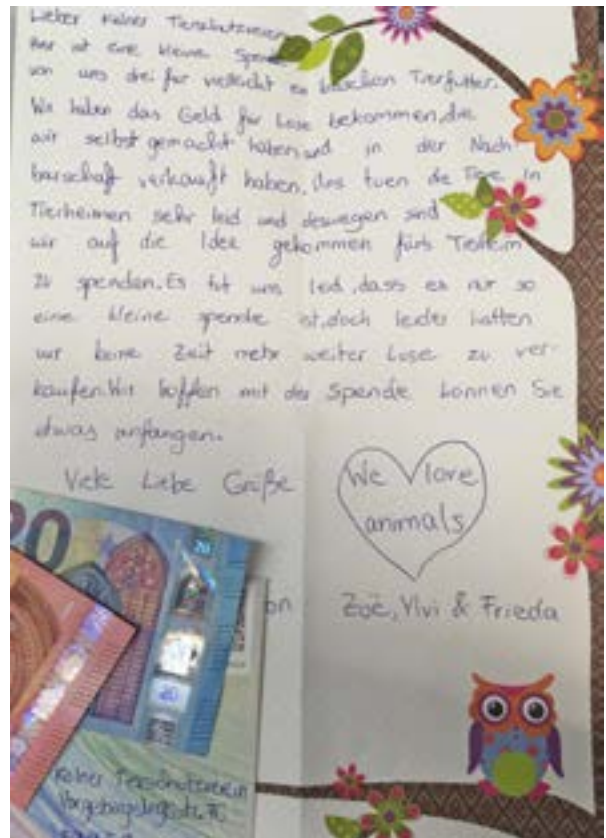 Lieber Kölner Tierschutzverein
hier ist eine kleine Spende
von uns drei für vielleicht ein bisschen Tierfutter.
Wir haben das Geld für Lose bekommen, die
wir selbst gemacht haben und in der Nach-
barschaft verkauft haben. Uns tuen die Tiere in
Tierheimen sehr leid und deswegen sind
wir auf die Idee gekommen fürs Tierheim
zu spenden. Es tut uns leid, dass es nur so
eine kleine spende ist, doch leider hatten
wir keine Zeit mehr weiter Lose zu ver-
kaufen. Wir hoffen mit der Spende können Sie
etwas anfangen.
Viele Liebe Grüße
We love
animals
von Zoë, Vivi & Frieda
20
20
Kölner Tierschutzverein
Vorgebirgsstr. 76